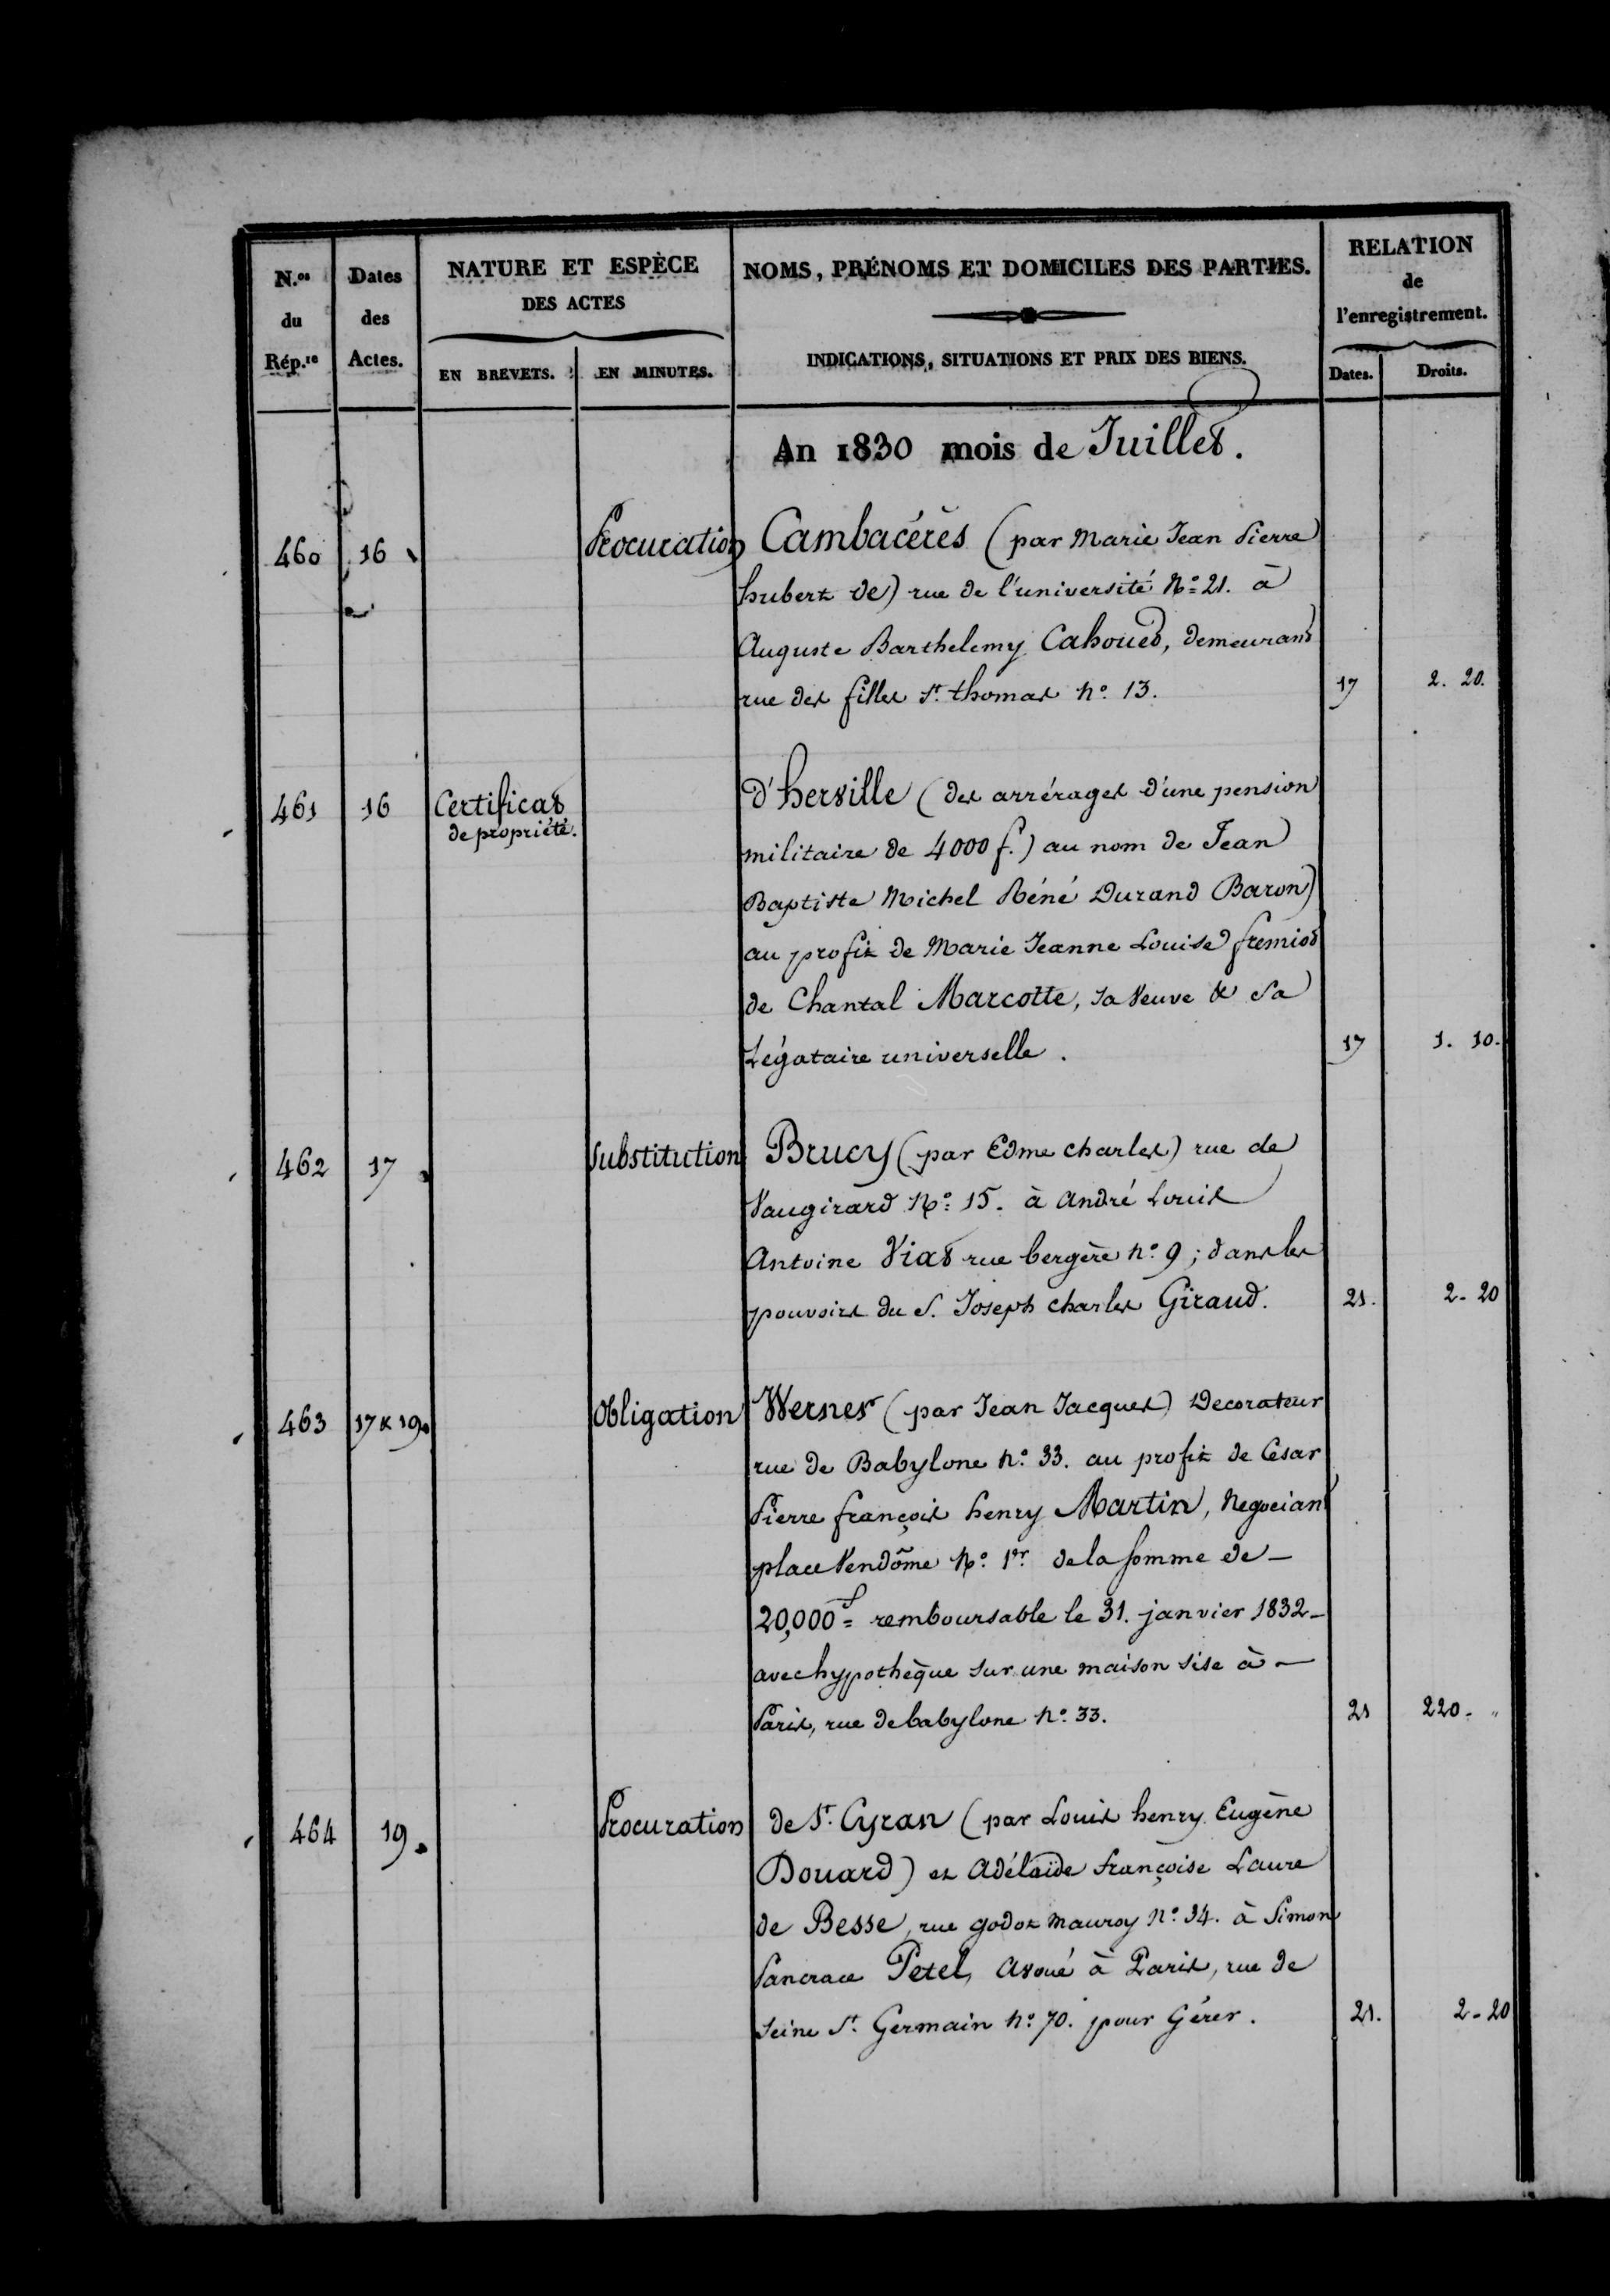 N.os du Rép.re
Dates des Actes.
NATURE ET ESPÈCE DES ACTES
EN BREVETS.
EN MINUTES.
NOMS, PRÉNOMS ET DOMICILES DES PARTIES.
INDICATIONS, SITUATIONS ET PRIX DES BIENS.
RELATION de l'enregistrement.
Dates.
Droits.
An 1830 mois de Juillet.
460 16 Procuration Cambacérès (par Marie Jean Pierre
hubert de) rue de l'université No. 21. à
Auguste Barthelemy Cahouet, demeurant
rue des filles St. thomas no. 13. 17 2. 20.
461 16 Certificat de propriété. d'herville (des arrérages d'une pension
militaire de 4000 f.) au nom de Jean
Baptiste Michel Réné Durand Baron)
au profit de Marie Jeanne Louise fremiot
de Chantal Marcotte, sa Veuve & Sa
Légataire universelle. 17 1. 10.
462 17 Substitution Brucy (par Edme charles) rue de
Vaugirard No. 15. à André Louis
Antoine Viat rue bergère no. 9; dans les
pouvoirs du S. Joseph charles Giraud. 21. 2-20
463 17 & 19 Obligation Werner (par Jean Jacques) Decorateur
rue de Babylone no. 33. au profit de César
Pierre françois henry Martin, Negociant
place Vendôme No. 1er. de la somme de
20,000 f remboursable le 31. janvier 1832
avec hypothèque sur une maison sise à
Paris, rue de babylone no. 33. 21 220. "
464 19. Procuration de St. Cyran (par Louis henry Eugène
Douard) et Adélaïde françoise Laure
de Besse, rue godot Mauroy No. 34. à Simon
Pancrace Petel, Avoué à Paris, rue de
Seine St. Germain no. 70. pour Gérer. 21. 2-20